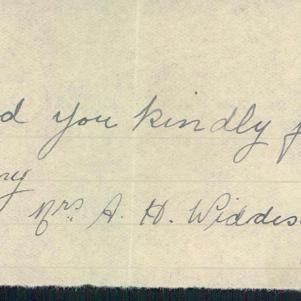 d you kindly f
ny
Mrs A. H. Widdes